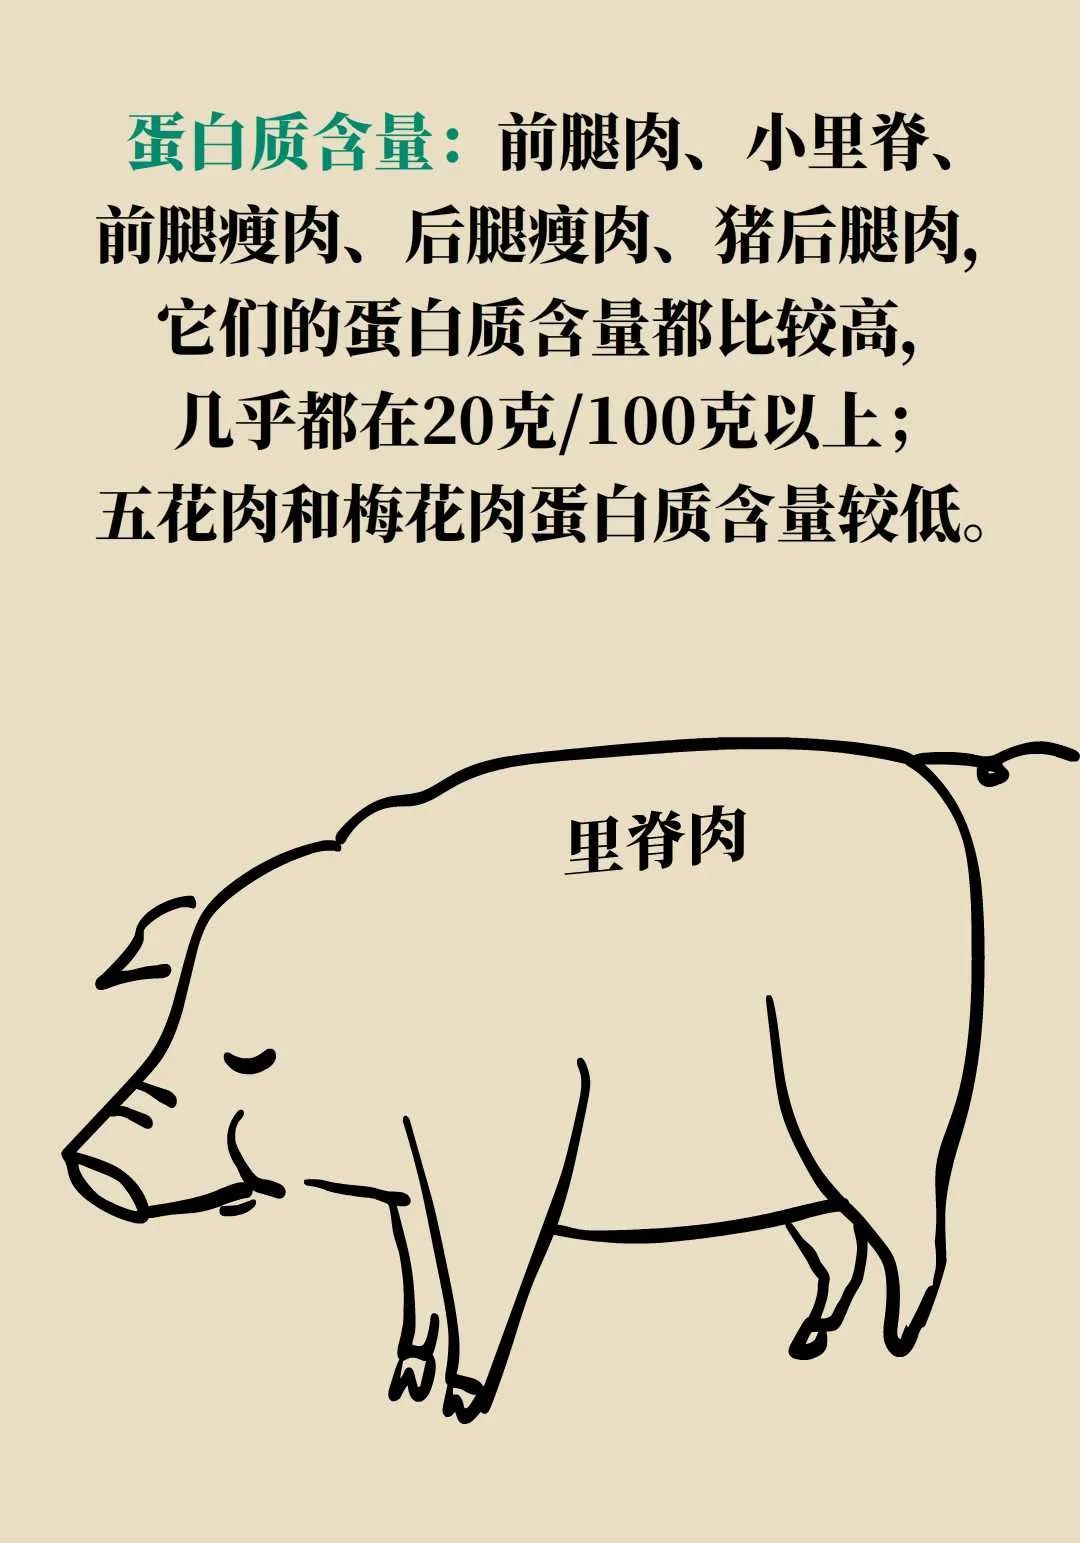 蛋白质含量：前腿肉、小里脊、
前腿瘦肉、后腿瘦肉、猪后腿肉，
它们的蛋白质含量都比较高，
几乎都在20克/100克以上；
五花肉和梅花肉蛋白质含量较低。
里脊肉